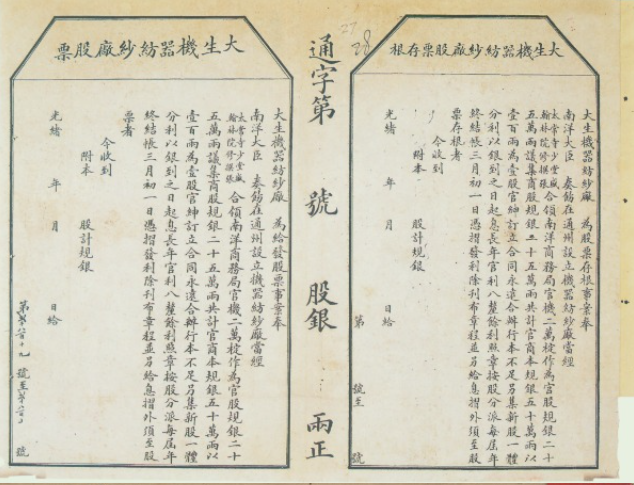 大生機器紡紗廠股票存根
大生機器紡紗廠　為股票存根事案奉
南洋大臣　奏飭在通州設立機器紡紗廠當經
太常寺少堂盛
翰林院修撰張
合領南洋商務局官機二萬梃作為官股規銀二十
五萬兩議集商股規銀二十五萬兩共計官商本規銀五十萬兩以
壹百兩為壹股官紳訂立合同永遠合辦行本不足另集新股一體
分利以銀到之日起息長年官利八釐餘利照章按股分派每屆年
終結帳三月初一日憑摺發利除刊布章程並另給息摺外須至股
票存根者
今收到
附本　股計規銀
光緒　年　月　日給
第　號至　號
通字第　號　股銀　兩正
28
大生機器紡紗廠股票
大生機器紡紗廠　為給發股票事案奉
南洋大臣　奏飭在通州設立機器紡紗廠當經
太常寺少堂盛
翰林院修撰張
合領南洋商務局官機二萬梃作為官股規銀二十
五萬兩議集商股規銀二十五萬兩共計官商本規銀五十萬兩以
壹百兩為壹股官紳訂立合同永遠合辦行本不足另集新股一體
分利以銀到之日起息長年官利八釐餘利照章按股分派每屆年
終結帳三月初一日憑摺發利除刊布章程並另給息摺外須至股
票者
今收到
附本　股計規銀
光緒　年　月　日給
號至　號